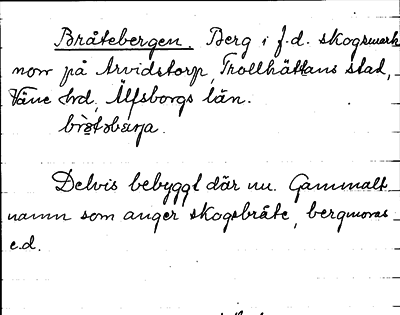 Bråtebergen. Berg i f.d. skogsmark
norr på Arvidstorp, Trollhättans stad,
Väne hrd, Älfsborgs län.
Delvis bebyggt där nu. Gammalt
namn som anger skogsbråte,
e.d.